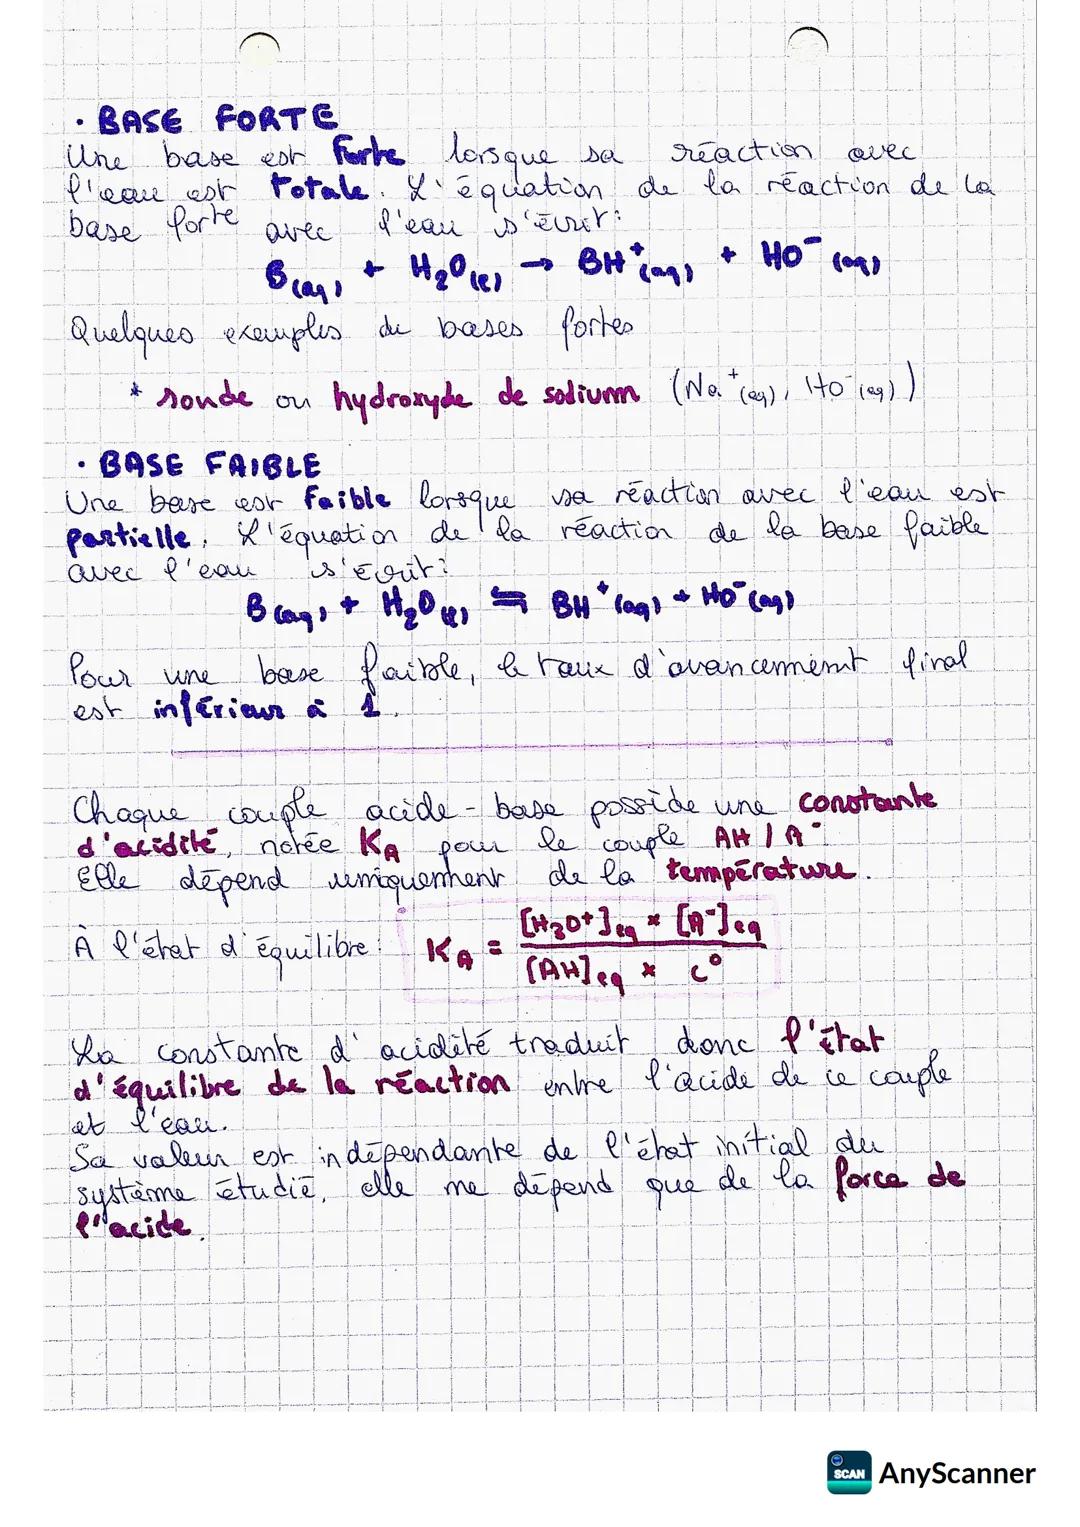 · BASE FORTE
Une base est forte lorsque sa réaction avec
l'eau est totale. L'équation de la réaction de la
base forte avec l'eau s'écrit :
B(aq) + H₂O(l) → BH⁺(aq) + HO⁻(aq)
Quelques exemples de bases fortes
* soude ou hydroxyde de sodium (Na⁺(aq), HO⁻(aq))
· BASE FAIBLE
Une base est faible lorsque sa réaction avec l'eau est
partielle. L'équation de la réaction de la base faible
avec l'eau s'écrit :
B(aq) + H₂O(l) ⇆ BH⁺(aq) + HO⁻(aq)
Pour une base faible, le taux d'avancement final
est inférieur à 1.
Chaque couple acide-base possède une constante
d'acidité, notée KA pour le couple AH / A⁻.
Elle dépend uniquement de la température.
À l'état d'équilibre : KA = [H₃O⁺]eq × [A⁻]eq
[AH]eq × c°
La constante d'acidité traduit donc l'état
d'équilibre de la réaction entre l'acide de ce couple
et l'eau.
Sa valeur est indépendante de l'état initial du
système étudié, elle ne dépend que de la force de
l'acide.
SCAN AnyScanner